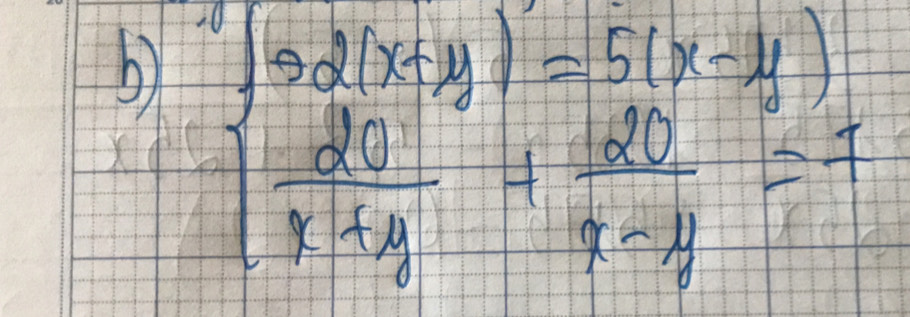 b) { 2(x+y) = 5(x-y)
20/(x+y) + 20/(x-y) = 7